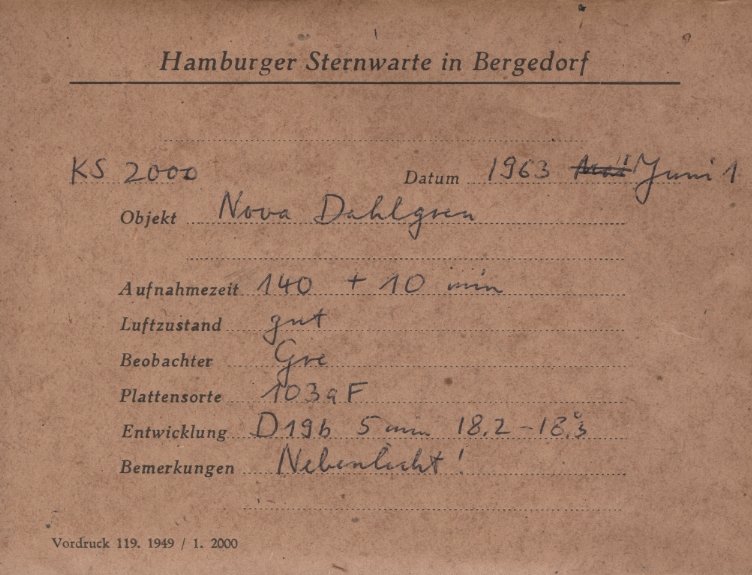 Hamburger Sternwarte in Bergedorf
KS 2000 Datum 1963 Juni 1
Objekt Nova Dahlgren
Aufnahmezeit 140 + 10 min
Luftzustand gut
Beobachter Gre
Plattensorte 103aF
Entwicklung D19b 5 min 18.2 – 18.°3
Bemerkungen Nebenlicht!
Vordruck 119. 1949 / 1. 2000